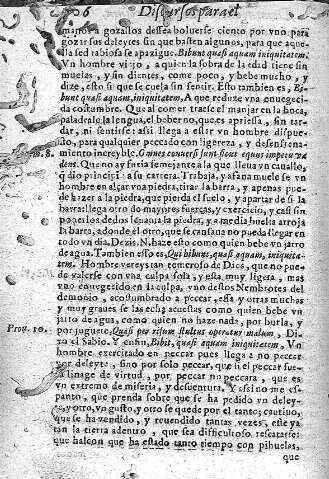 6 Discursos para el
a gozallos dessea boluerse ciento por vno para
gozar sus deleytes sin que basten algunos, para que aque-
lla sed rabiosa se apazigue. Bibunt quasi aquam iniquitatem.
Vn hombre viejo, a quien la sobra de la edad tiene sin
muelas, y sin dientes, come poco, y bebe mucho, y
dize, esto si que se cuela sin sentir. Esto tambien es, Bi-
bunt quasi aquam, iniquitatem, A que reduze vna enuegeci-
da costumbre. Que al comer trasse el manjar en la boca,
paladeale la lengua, el beber no, que es apriessa, sin tar-
dar, ni sentirse: assi llega a estar vn hombre dispues-
to, para qualquier peccado con ligereza, y desenfrena-
miento increyble. Omnes conuersi sunt sicut equus impetu va
dens. Que no ay furia semejante a la que lleua vn cauallo,
que dio principio a su carrera. Trabaja, y afana mucho se vn
hombre en alçar vna piedra, tirar la barra, y apenas pue-
de hazer a la piedra, que pierda el suelo, y apartar de si la
barra: llega otro de mayores fuerças, y exercicio, y casi sin
poner los dedos leuanta la piedra, y a media buelta arroja
la barra, a donde el otro, que se cansaua no pueda llegar en
todo vn dia. Dezis, N. haze esto como quien bebe vn jarro
de agua. Tambien esto es, Qui bibunt, quasi aquam, iniquita-
tem. Hombre vereys tan temeroso de Dios, que no pue-
de valerse con vna culpa sola, y esta muy ligera, mas
vno enuegecido en la culpa, vno destos Nembrotes del
demonio, acostumbrado a peccar, essa y otras muchas
y muy graues se las echa acuestas como quien bebe vn
jarro de agua, como quien no haze nada, por burla, y
Prou. 10. por juguete, Quasi per risum stultus operatur malum, Di-
zo el sabio. Y enfin, Bibit, quasi aquam iniquitatem, Vn
hombre exercitado en peccar pues llega a no peccar
por deleyte, sino por solo peccar, que si el peccar fue-
ra linage de virtud, por peccar no peccara, que es
vn extremo de miseria, y desuentura. Y assi no me es-
panto, que prenda sobre que se ha pedido vn deley-
te, y otro, vn gusto, y otro se quede por el tanto; cautiuo,
que se ha vendido, y reuendido tantas vezes, este ya
tan la tierra adentro, que sea dificultoso rescatarse:
que halcon que ha estado tanto tiempo con pihuelas,
que